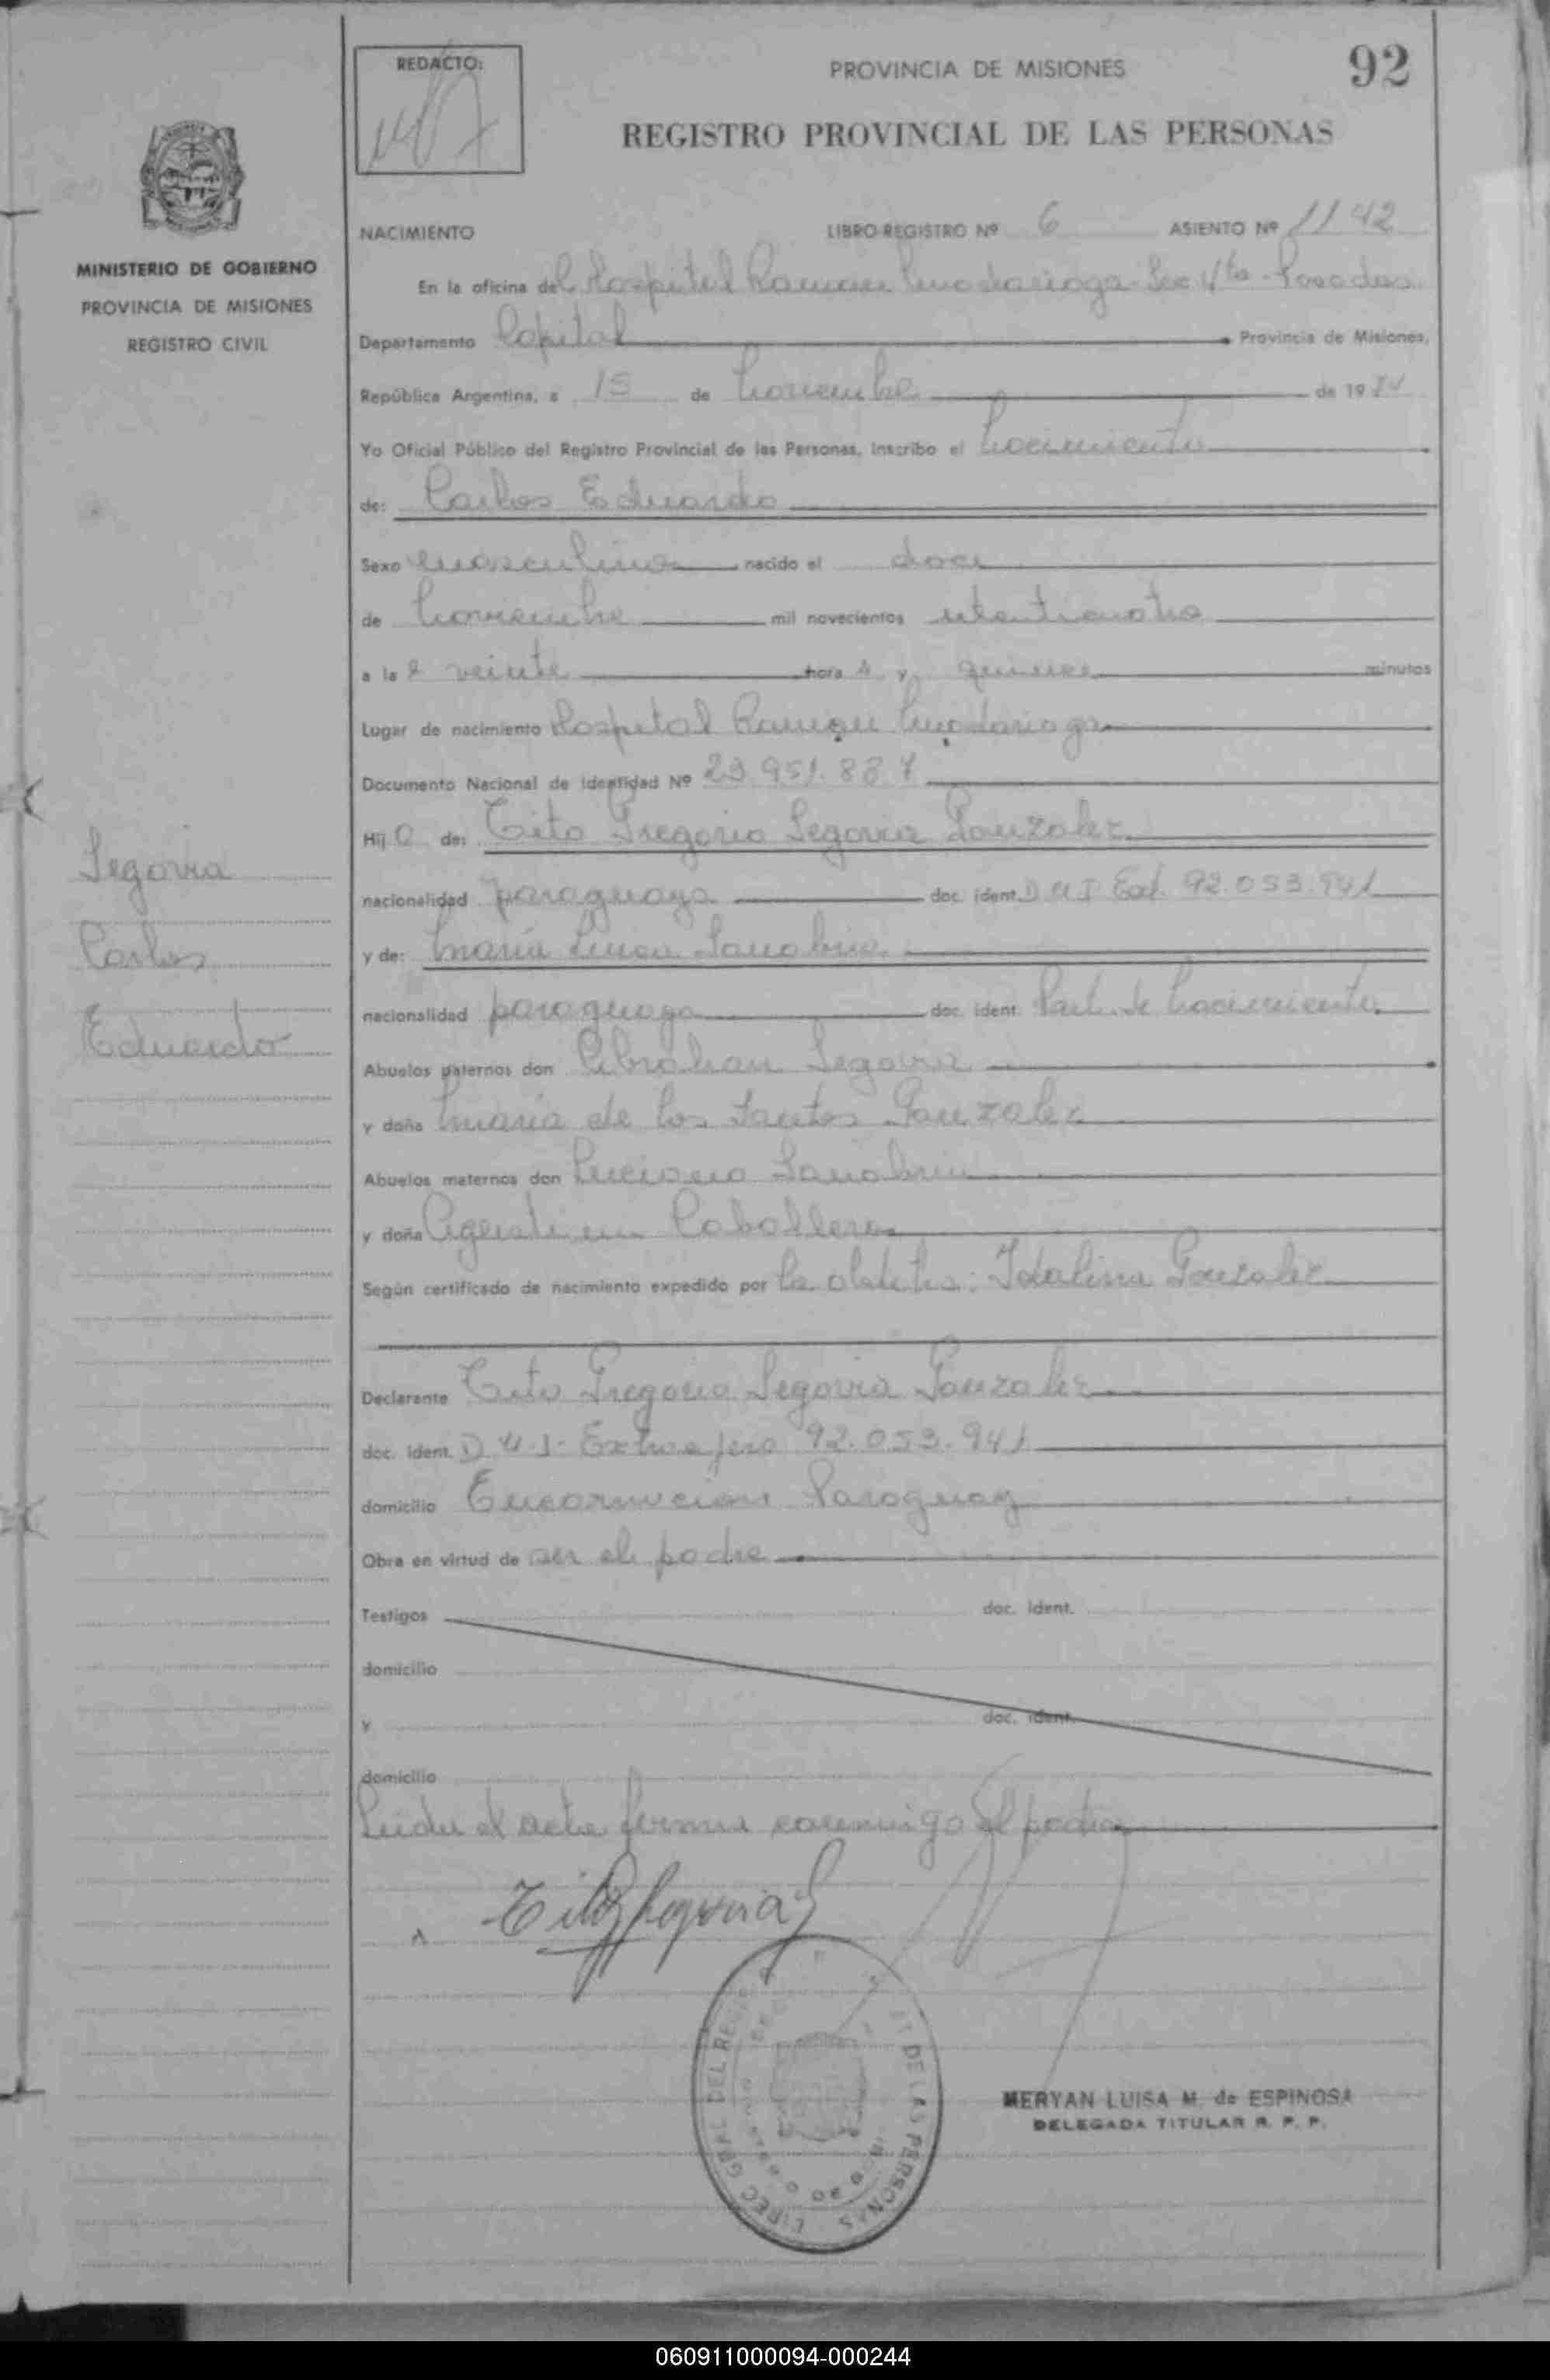 REDACTO:
PROVINCIA DE MISIONES
92
REGISTRO PROVINCIAL DE LAS PERSONAS
MINISTERIO DE GOBIERNO
PROVINCIA DE MISIONES
REGISTRO CIVIL
NACIMIENTO LIBRO-REGISTRO Nº 6 ASIENTO Nº 1142
En la oficina del Hospital Ramon Madariaga Sec 4ta Posadas
Departamento Capital Provincia de Misiones,
República Argentina, a 15 de noviembre de 1984
Yo Oficial Público del Registro Provincial de las Personas, inscribo el nacimiento
de: Carlos Eduardo
Sexo masculino nacido el doce
de noviembre mil novecientos
a las veinte horas y quince minutos
Lugar de nacimiento Hospital Ramon Madariaga
Documento Nacional de Identidad Nº 23.951.887
Hijo de: Tito Gregorio Segovia Gonzalez
nacionalidad paraguaya doc. ident. DNI Ext. 92.053.941
y de: María Sanabria
nacionalidad paraguaya doc. ident. Part. de nacimiento
Abuelos paternos don Abrahan Segovia
y doña María de los Santos Gonzalez
Abuelos maternos don Luciano Sanabria
y doña Agustina Caballero
Según certificado de nacimiento expedido por la obstetra: Idalina Gonzalez
Segovia
Carlos
Eduardo
Declarante Tito Gregorio Segovia Gonzalez
doc. ident. D.N.I. Extranjero 92.053.941
domicilio Encarnacion Paraguay
Obra en virtud de ser el padre
Testigos doc. ident.
domicilio
y doc. ident.
domicilio
Leida el acta firma conmigo el padre
Tito Segovia G
DIREC GRAL DEL REG DE LAS PERSONAS
MERYAN LUISA M. de ESPINOSA
DELEGADA TITULAR R. P. P.
060911000094-000244